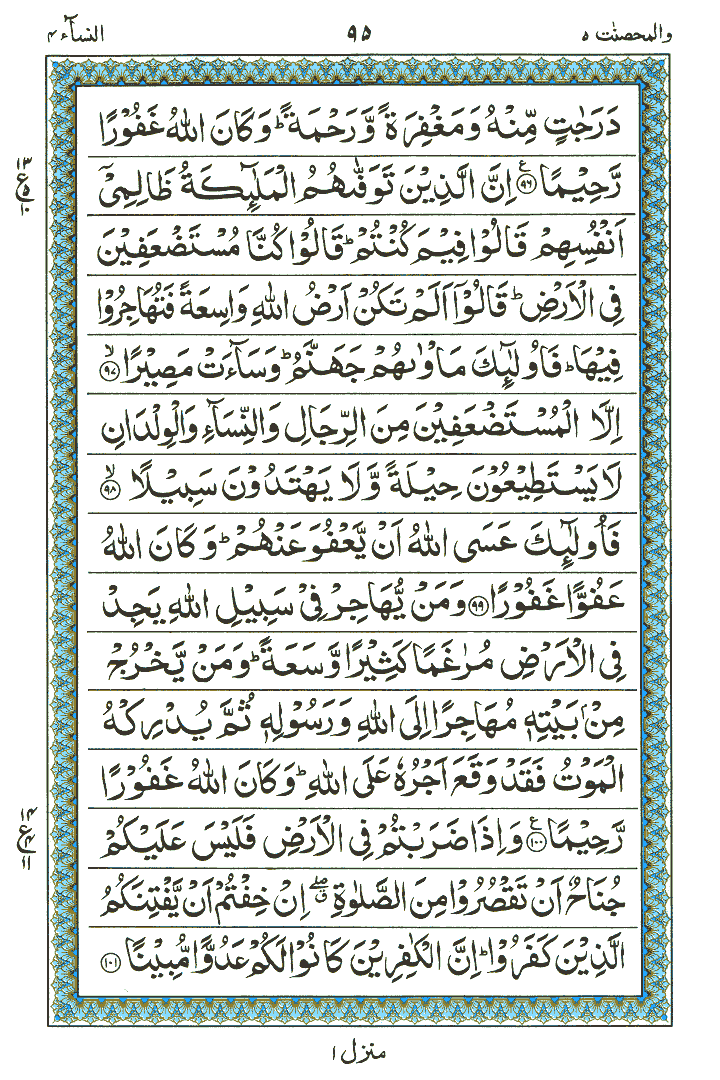 والمحصنٰت ۵
۹۵
النسآء ۴
دَرَجٰتٍ مِّنْهُ وَمَغْفِرَةً وَّرَحْمَةً ؕ وَكَانَ اللّٰهُ غَفُوْرًا
رَّحِيْمًا ﴿۹۶﴾ ع اِنَّ الَّذِيْنَ تَوَفّٰىهُمُ الْمَلٰٓئِكَةُ ظَالِمِيْۤ
۱۳
ع
۵
۱۰
اَنْفُسِهِمْ قَالُوْا فِيْمَ كُنْتُمْ ؕ قَالُوْا كُنَّا مُسْتَضْعَفِيْنَ
فِى الْاَرْضِ ؕ قَالُوْۤا اَلَمْ تَكُنْ اَرْضُ اللّٰهِ وَاسِعَةً فَتُهَاجِرُوْا
فِيْهَا ؕ فَاُولٰٓئِكَ مَاْوٰىهُمْ جَهَنَّمُ ؕ وَسَآءَتْ مَصِيْرًا ﴿۹۷﴾ ۙ
اِلَّا الْمُسْتَضْعَفِيْنَ مِنَ الرِّجَالِ وَالنِّسَآءِ وَالْوِلْدَانِ
لَا يَسْتَطِيْعُوْنَ حِيْلَةً وَّلَا يَهْتَدُوْنَ سَبِيْلًا ﴿۹۸﴾ ۙ
فَاُولٰٓئِكَ عَسَى اللّٰهُ اَنْ يَّعْفُوَ عَنْهُمْ ؕ وَكَانَ اللّٰهُ
عَفُوًّا غَفُوْرًا ﴿۹۹﴾ وَمَنْ يُّهَاجِرْ فِىْ سَبِيْلِ اللّٰهِ يَجِدْ
فِى الْاَرْضِ مُرٰغَمًا كَثِيْرًا وَّسَعَةً ؕ وَمَنْ يَّخْرُجْ
مِنْۢ بَيْتِهٖ مُهَاجِرًا اِلَى اللّٰهِ وَرَسُوْلِهٖ ثُمَّ يُدْرِكْهُ
الْمَوْتُ فَقَدْ وَقَعَ اَجْرُهٗ عَلَى اللّٰهِ ؕ وَكَانَ اللّٰهُ غَفُوْرًا
رَّحِيْمًا ﴿۱۰۰﴾ ع وَاِذَا ضَرَبْتُمْ فِى الْاَرْضِ فَلَيْسَ عَلَيْكُمْ
۱۴
ع
۴
۱۱
جُنَاحٌ اَنْ تَقْصُرُوْا مِنَ الصَّلٰوةِ ۖ ق اِنْ خِفْتُمْ اَنْ يَّفْتِنَكُمُ
الَّذِيْنَ كَفَرُوْا ؕ اِنَّ الْكٰفِرِيْنَ كَانُوْا لَكُمْ عَدُوًّا مُّبِيْنًا ﴿۱۰۱﴾
منزل ۱